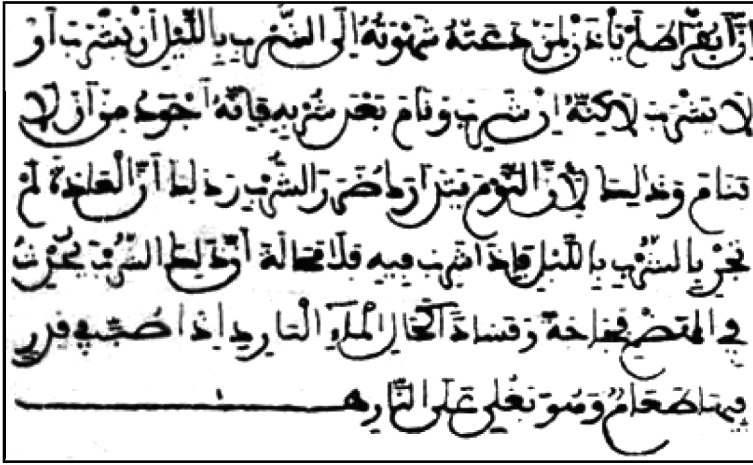 أنّ أبقراط يأذن لمن دعته شهوته إلى الشّرب باللّيل أن يشرب أو
لا يشرب لاكنّه إن شرب ونام بعد شربه فإنّه أجود من أن لا
ينام وذلك لأنّ النّوم يتدارك ضرر الشّرب وذلك أنّ العادة لم
تجر بالشّرب باللّيل فإذا شرب فيه فلا محالة أنّ ذلك الشّرب يحدث
في الهضم فجاجة وفسادا كحال الماء البارد إذا صبّ في قدر
فيها طعام وهو يغلي على النّار ه